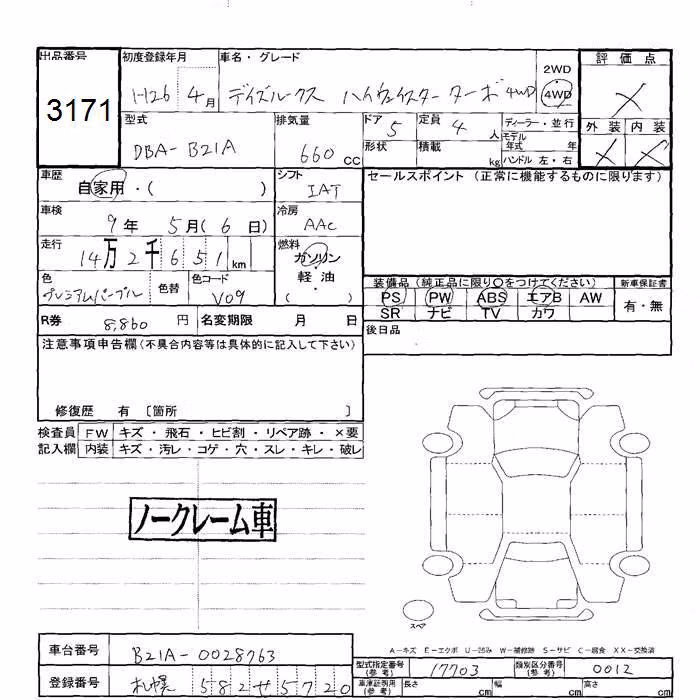 出品番号 初度登録年月 車名・グレード 2WD 評価点
3171 H26 4月 デイズルークス ハイウェイスター ターボ 4WD 4WD ×
型式 排気量 ドア 5 定員 4人 ディーラー・並行 外装 内装
DBA-B21A 660cc 形状 積載 kg モデル年式 年 ハンドル 左・右 × ×
車歴 自家用・( ) シフト IAT セールスポイント (正常に機能するものに限ります)
車検 9年 5月(6日) 冷房 AAC
走行 14万2千651km 燃料 ガソリン
軽・油
( )
色 プレミアムパープル 色替 色コード V09 装備品 (純正品に限り○をつけてください) 新車保証書
PS PW ABS エアB AW 有・無
SR ナビ TV カワ
R券 8,860円 名変期限 月 日 後日品
注意事項申告欄(不具合内容等は具体的に記入して下さい)
修復歴 有 〔箇所 〕
検査員 FW キズ・飛石・ヒビ割・リペア跡・×要
記入欄 内装 キズ・汚レ・コゲ・穴・スレ・キレ・破レ
ノークレーム車
スペア
A-キズ E-エクボ U-凹み W-補修跡 S-サビ C-腐食 XX-交換済
車台番号 B21A-0028763 型式指定番号(参考) 17703 類別区分番号(参考) 0012
登録番号 札幌 582せ5720 車庫証明用(参考) 長さ cm 幅 cm 高さ cm